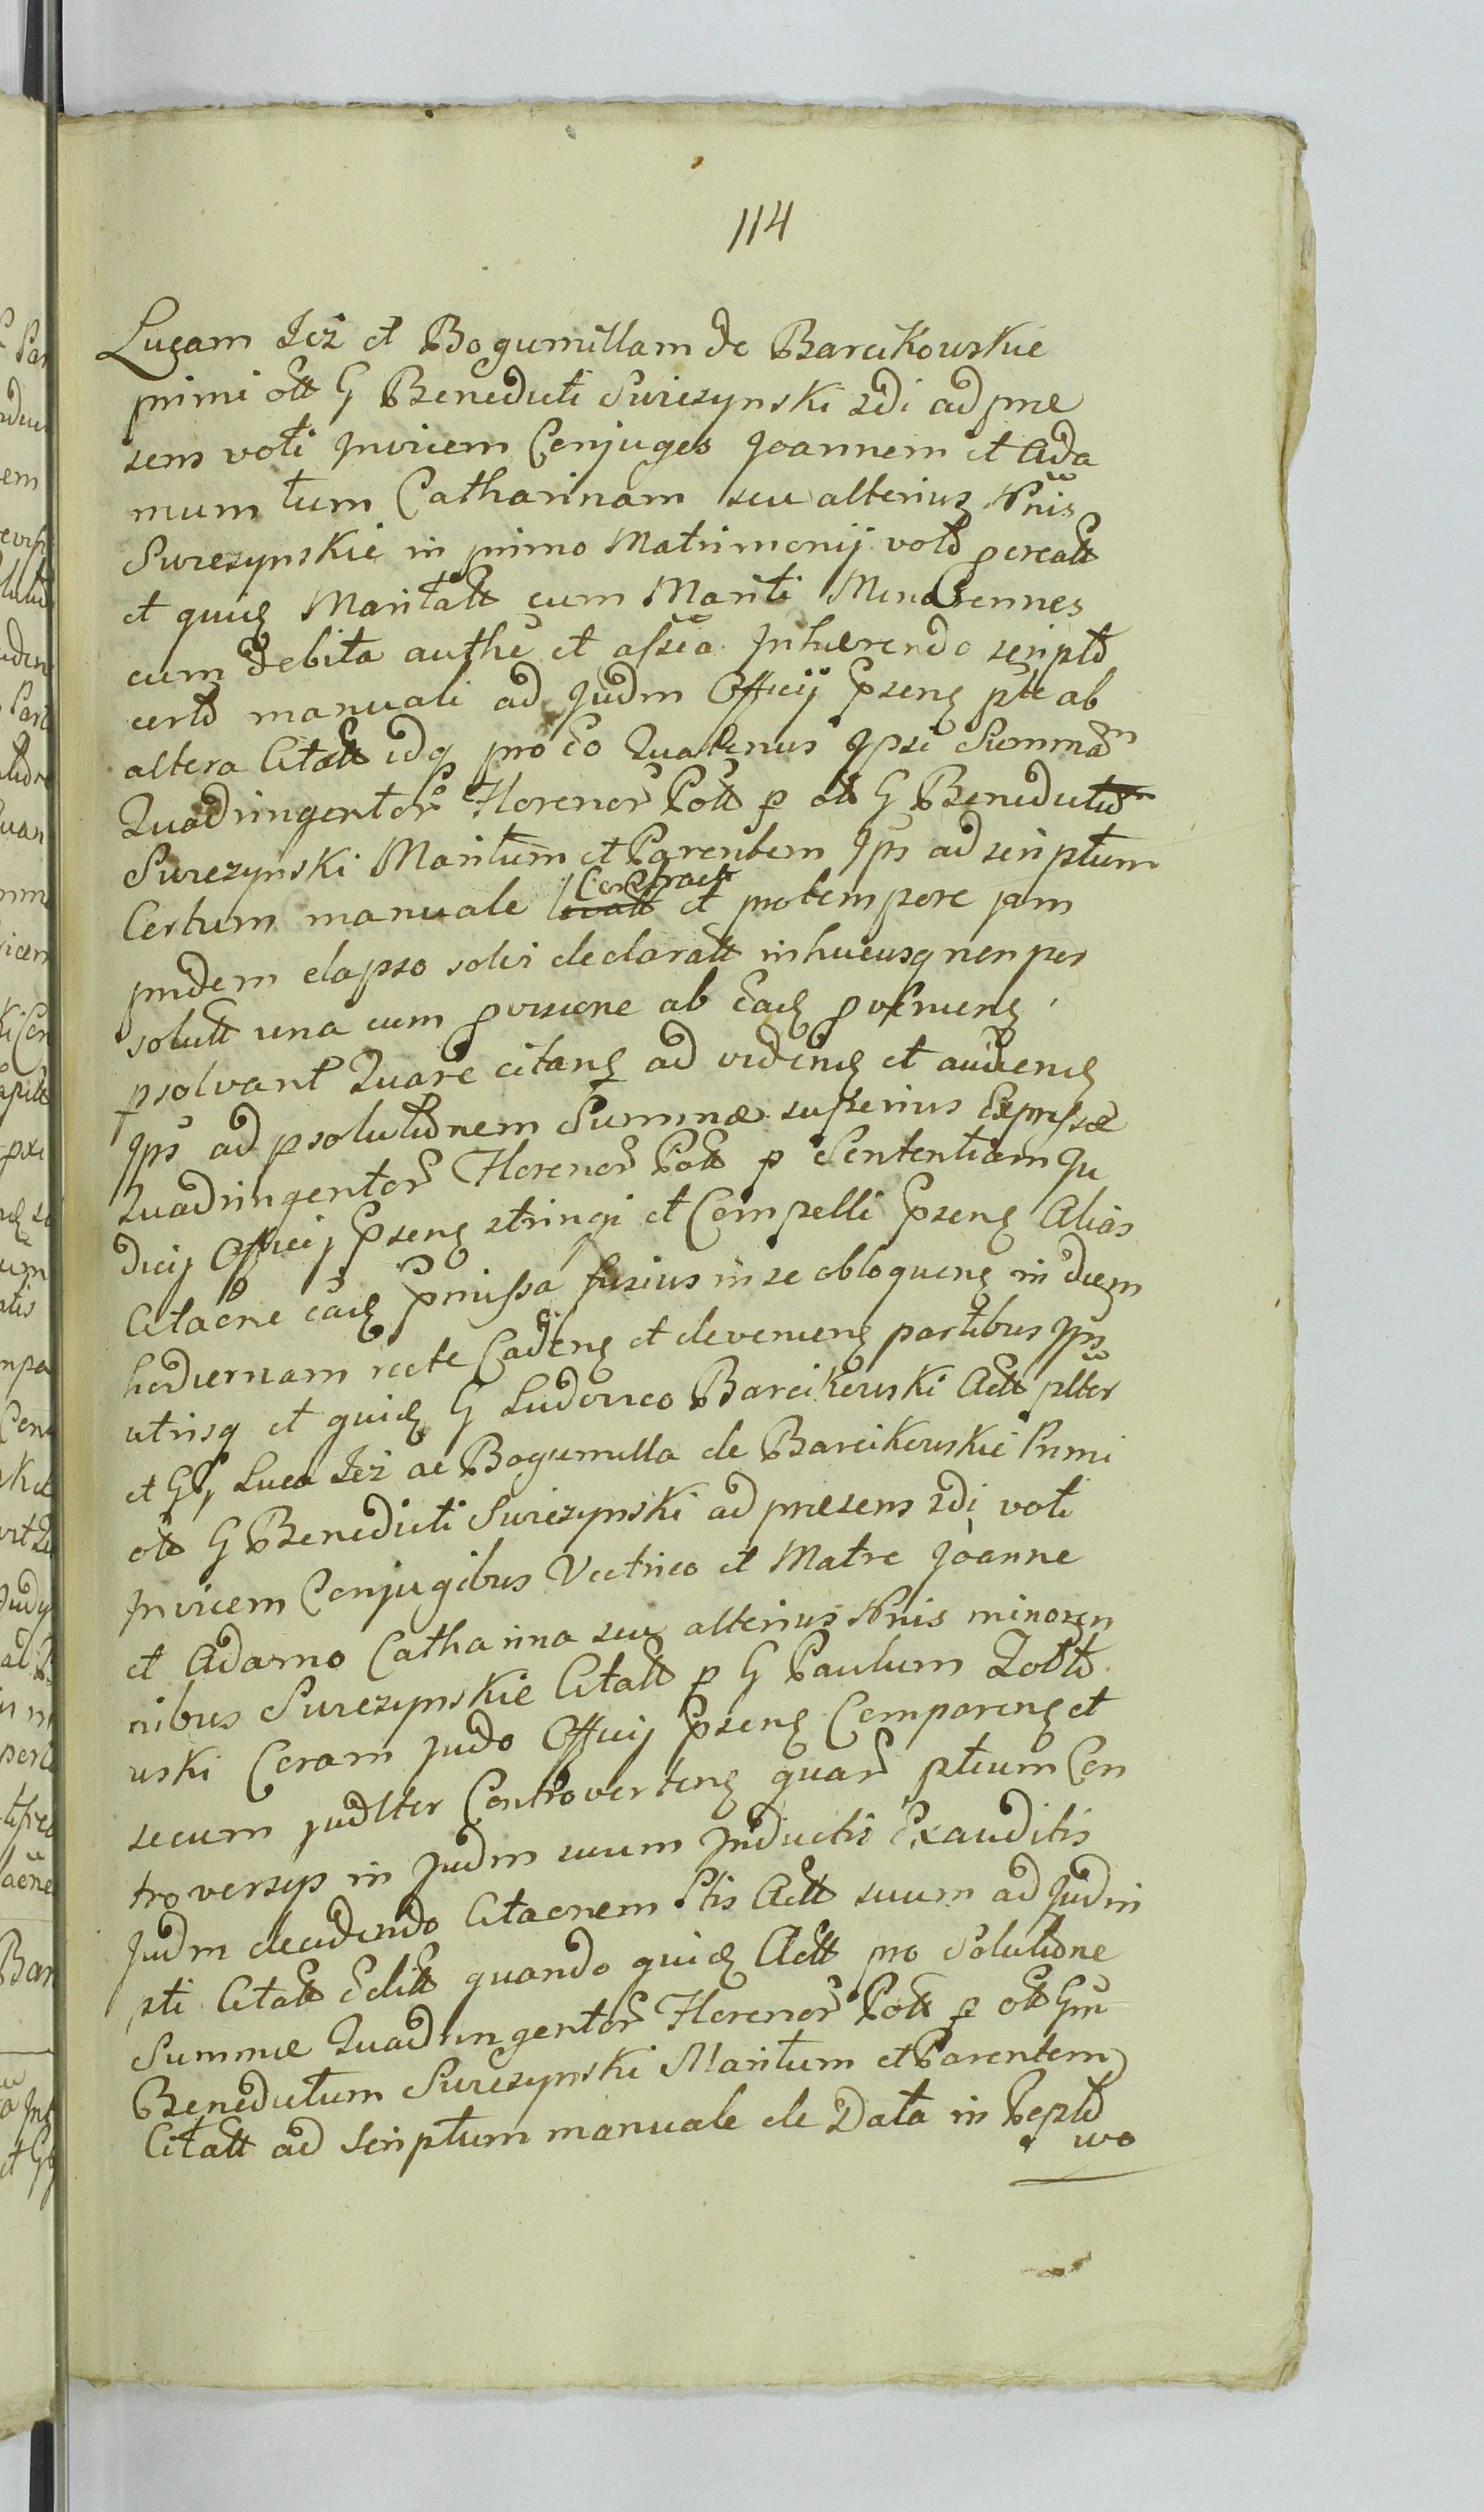 114
Lucam Jeż et Bogumillam de Barcikowskie
primi olt G Benedicti Swiezynski 2di ad præ
sens voti Invicem Conjuges Joannem et Ada
mum tum Catharinam seu alterius Nnis
Swiezynskie in primo Matrimonij voto pcreatt
et quid Maritatt cum Mariti Minorennes
cum debita authe et assea Inhærendo scripto
certo manuali ad Judm Officij Psens pte ab
altera Citatt idq pro eo Quatenus Ipsi Summam
Quadringentor Florenor Poll p olt G Benedictum
Swiezynski Maritum et Parentem Ips ad scriptum
Certum manuale Contract et pro tempore jam
pridem elapso solvi declaratt inhucusq non per
solutt una cum pvisione ab Ead pveniens
psolvant Quare citans ad vidend et audiend
Ips ad psolutionem Summæ superius Expressæ
Quadringentor Florenor Poll p Sententiam Ju
dicij Officij Psens stringi et Compelli Psens Alias
Citaone ead Pmissa fusius in se obloquens in diem
hodiernam recte Cadens et deveniens partibus Ips
utrisq et quid G Ludovico Barcikowski Actt plter
et GG Luca Jeż ac Bogumilla de Barcikowskie Primi
olt G Benedicti Swiezynski ad præsens 2di voti
Invicem Conjugibus Vitrico et Matre Joanne
et Adamo Catharina seu alterius Nnis minoren
nibus Swiezynskie Citatt p G Paulum Zołto
wski Coram Judo Officij Psens Comparens et
secum judlter Controvertens quar ptium Con
troversys in Judm suum Inductis Exauditis
Judm decidendo Citaonem Ptis Actt suum ad Judm
pti Citatt Editt quando quid Actt pro Solutione
Summæ Quadringentor Florenor Poll p olt Gm
Benedictum Swiezynski Maritum et Parentem
Citatt ad Scriptum manuale de Data in Repto
wo